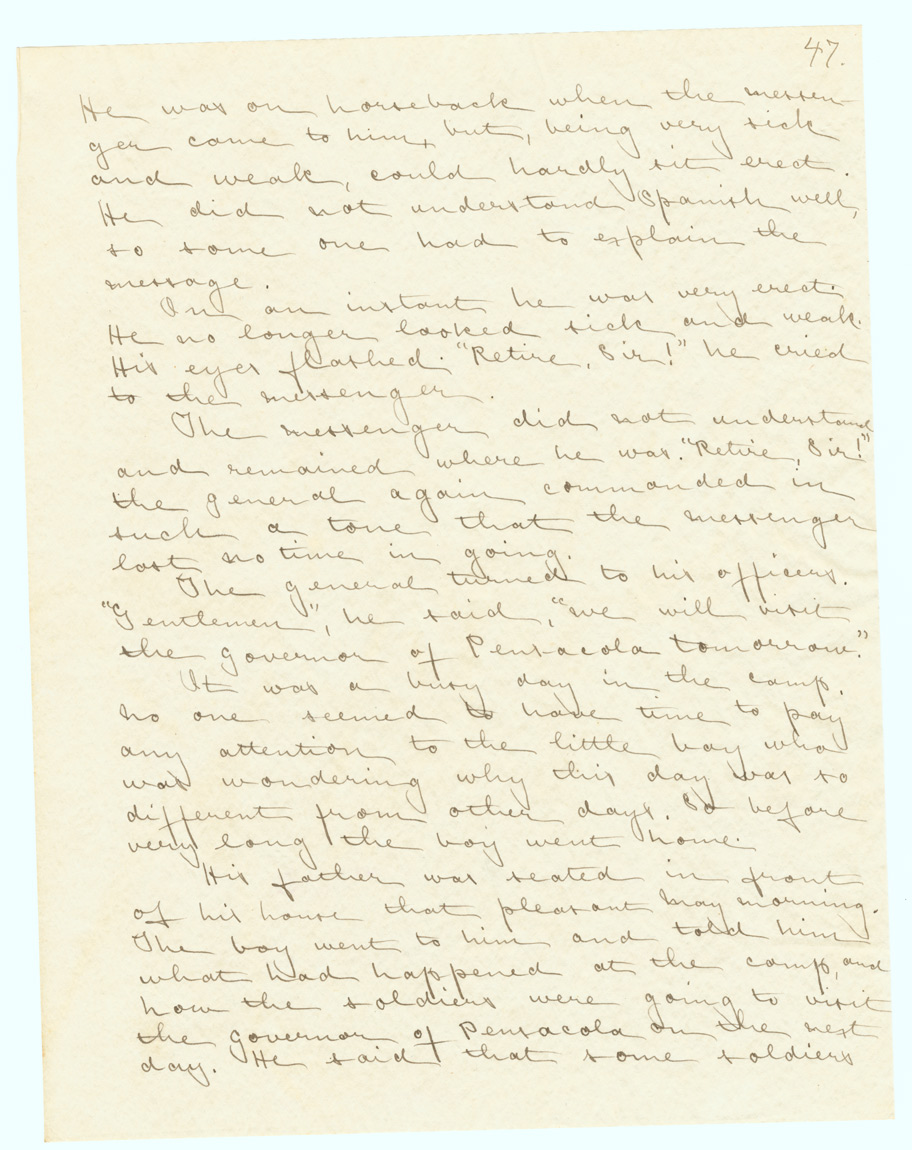 47.
He was on horseback when the messen-
ger came to him, but, being very sick
and weak, could hardly sit erect.
He did not understand Spanish well,
so some one had to explain the
message.
In an instant he was very erect.
He no longer looked sick and weak.
His eyes flashed. "Retire, Sir!" he cried
to the messenger.
The messenger did not understand
and remained where he was. "Retire, Sir!"
the general again commanded in
such a tone that the messenger
lost no time in going.
The general turned to his officers.
"Gentlemen", he said, "we will visit
the governor of Pensacola tomorrow."
It was a busy day in the camp.
No one seemed to have time to pay
any attention to the little boy who
was wondering why this day was so
different from other days. So before
very long the boy went home.
His father was seated in front
of his house that pleasant May morning.
The boy went to him and told him
what had happened at the camp, and
how the soldiers were going to visit
the governor of Pensacola on the next
day. He said that some soldiers